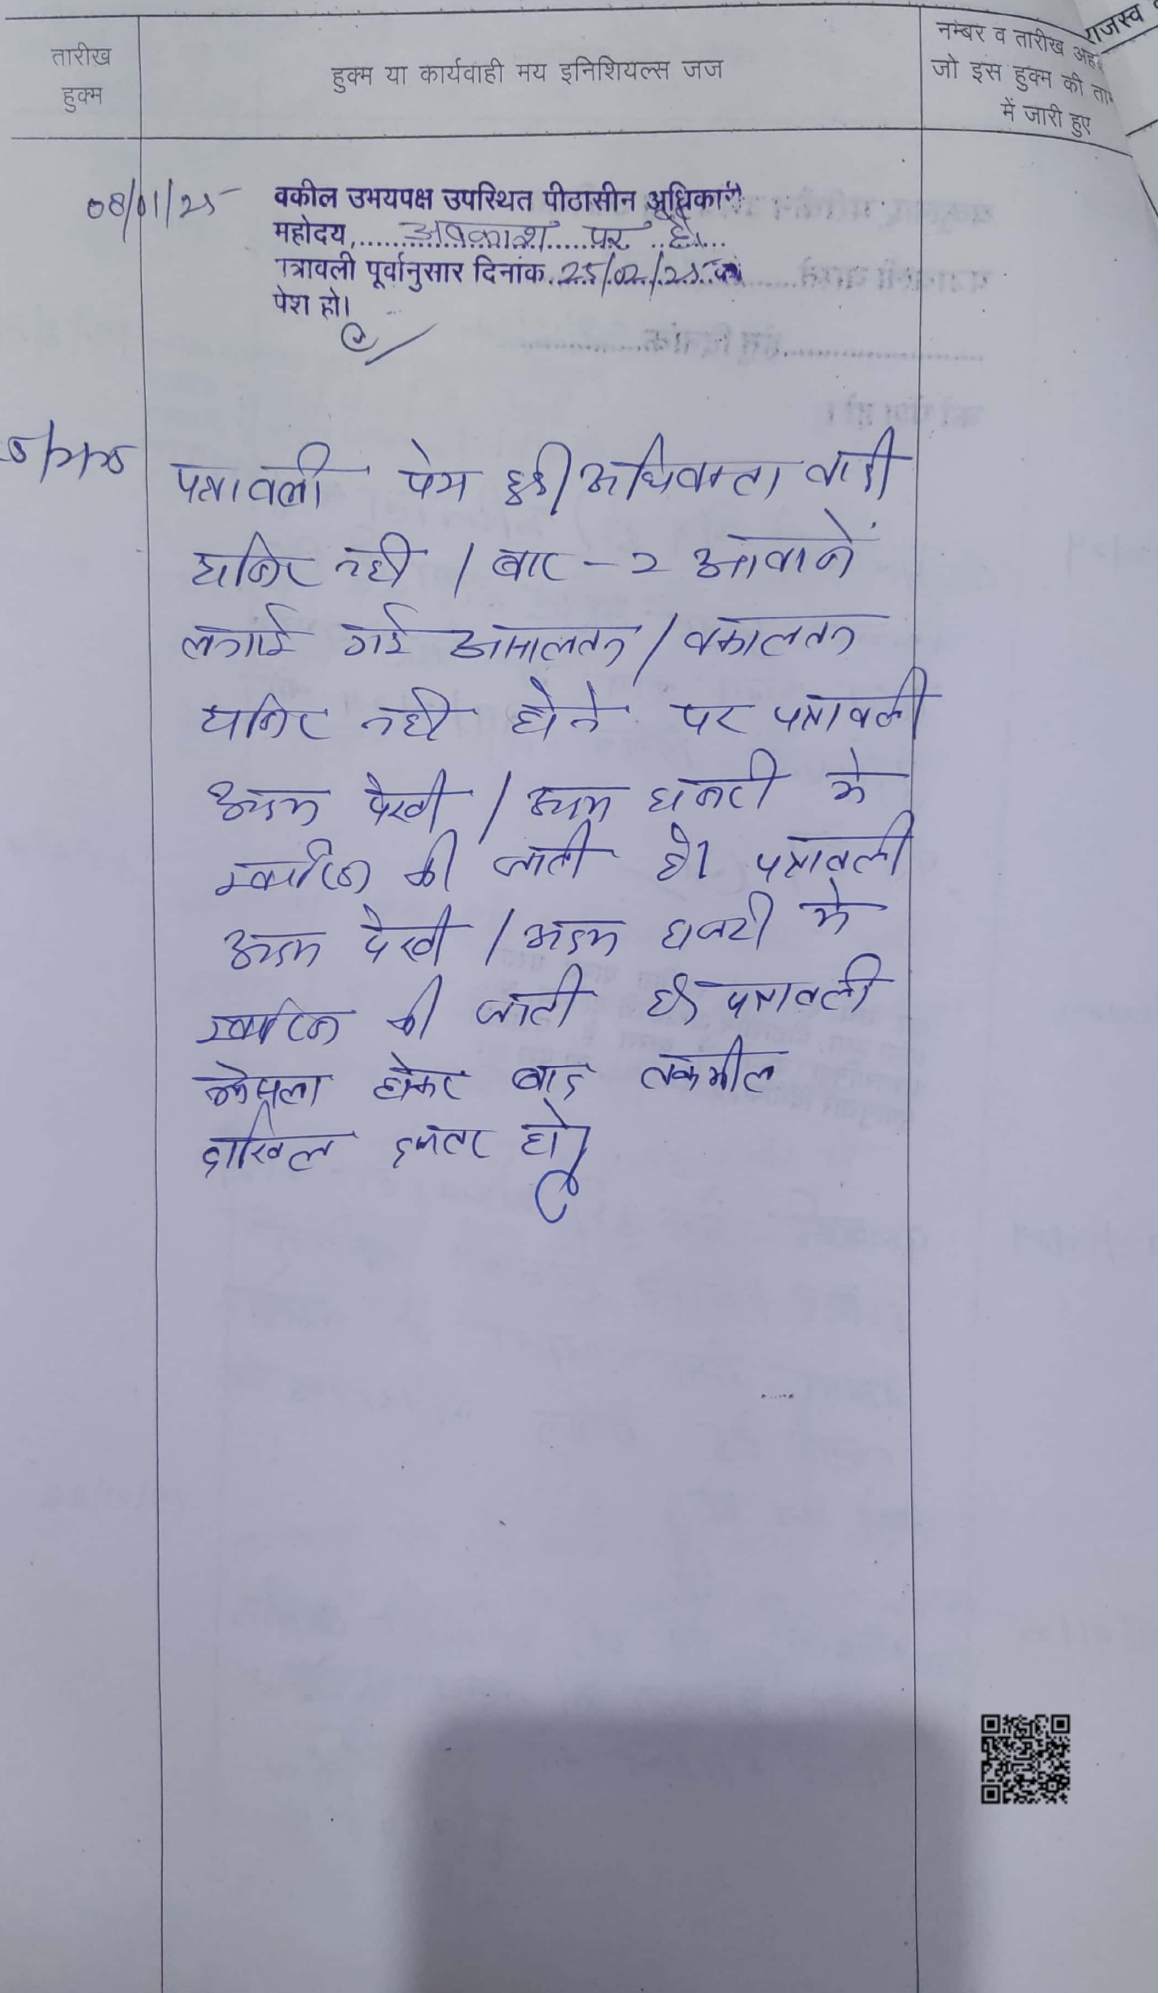 राजस्व
तारीख
हुक्म
हुक्म या कार्यवाही मय इनिशियल्स जज
नम्बर व तारीख अह
जो इस हुक्म की ता
में जारी हुए
08/01/25
वकील उभयपक्ष उपस्थित पीठासीन अधिकारी
महोदय, अवकाश पर है।
पत्रावली पूर्वानुसार दिनांक 25/02/25 को
पेश हो।
पत्रावली पेश हुई। अधिवक्ता वादी
हाजिर नहीं। बार-2 आवाजें
लगाई गई असालतन/वकालतन
हाजिर नहीं होने पर पत्रावली
अदम पैरवी/अदम हाजरी में
खारिज की जाती है। पत्रावली
अदम पैरवी/अदम हाजरी में
खारिज की जाती है। पत्रावली
फैसला होकर बाद तकमील
दाखिल दफ्तर हो।